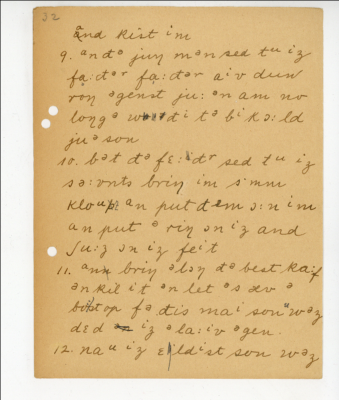 32
ănd kist im
9. ənd ə juŋ mən sed tᵘ iz
fɑ:dər fɑ:dər ai v dun
roŋ əgenst ju: ən am no
loŋgə di tə bi kɔ:ld
ju ə son
10. bət də fɛ: dr sed tᵘ iz
sə:vnts briŋ im s mm
ən put dem ɔ:n im
an put ə riŋ ɔn iz and
ʃu:z ɔn iz feit
11. ann briŋ əlɔŋ də best ka:f
ən kil it ən let əs æv ə
fə ðis mai son wəz
dɛd iz əla:iv əgen.
12. naᵘ iz son wəz